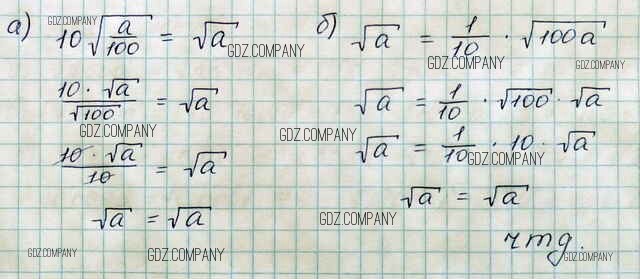 а) 10√(a/100) = √a
(10 · √a)/√100 = √a
(10 · √a)/10 = √a
√a = √a
б) √a = 1/10 · √(100a)
√a = 1/10 · √100 · √a
√a = 1/10 · 10 · √a
√a = √a
чтд.
GDZ.COMPANY
GDZ.COMPANY
GDZ.COMPANY
GDZ.COMPANY
GDZ.COMPANY
GDZ.COMPANY
GDZ.COMPANY
GDZ.COMPANY
GDZ.COMPANY
GDZ.COMPANY
GDZ.COMPANY
GDZ.COMPANY